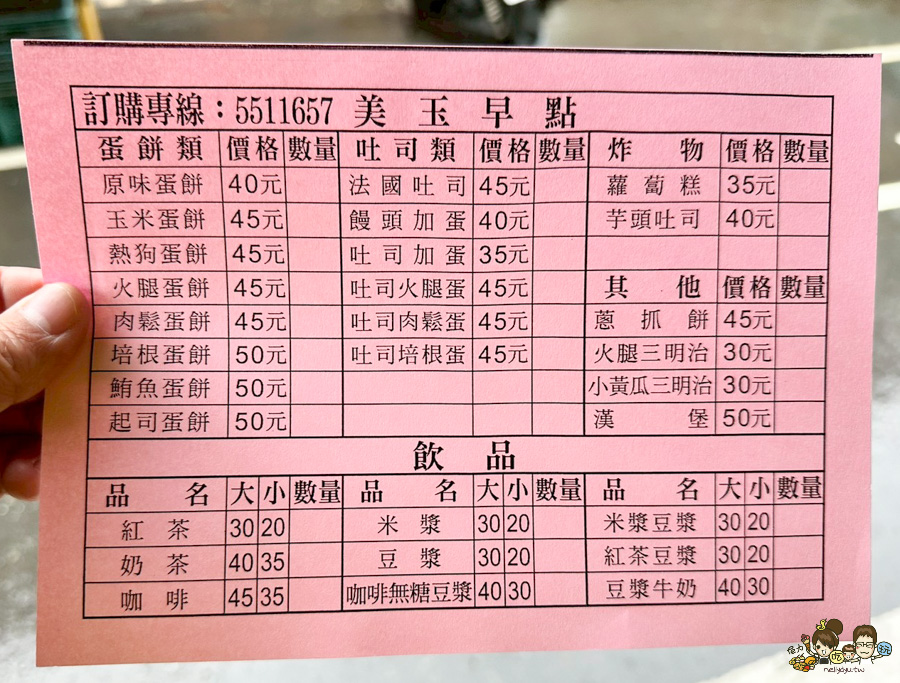 訂購專線：5511657 美玉早點
蛋餅類 價格 數量 吐司類 價格 數量 炸物 價格 數量
原味蛋餅 40元 法國吐司 45元 蘿蔔糕 35元
玉米蛋餅 45元 饅頭加蛋 40元 芋頭吐司 40元
熱狗蛋餅 45元 吐司加蛋 35元
火腿蛋餅 45元 吐司火腿蛋 45元 其他 價格 數量
肉鬆蛋餅 45元 吐司肉鬆蛋 45元 蔥抓餅 45元
培根蛋餅 50元 吐司培根蛋 45元 火腿三明治 30元
鮪魚蛋餅 50元 小黃瓜三明治 30元
起司蛋餅 50元 漢堡 50元
飲品
品名 大 小 數量 品名 大 小 數量 品名 大 小 數量
紅茶 30 20 米漿 30 20 米漿豆漿 30 20
奶茶 40 35 豆漿 30 20 紅茶豆漿 30 20
咖啡 45 35 咖啡無糖豆漿 40 30 豆漿牛奶 40 30
neiyoyu.tw